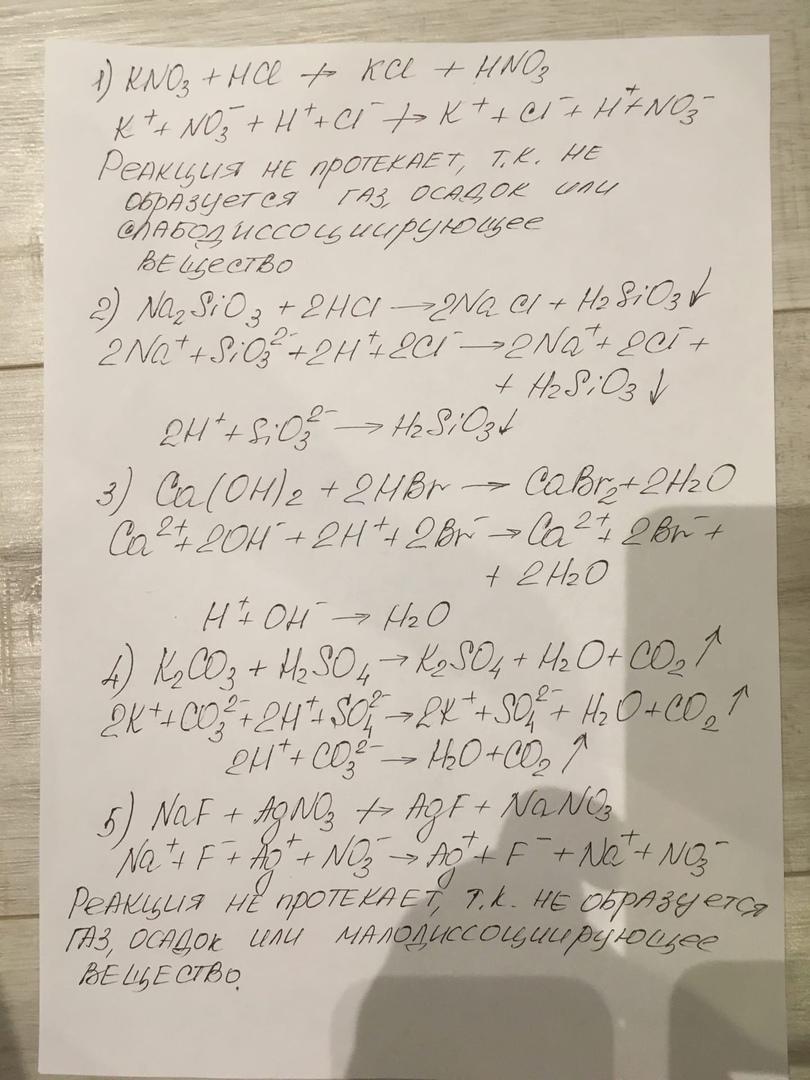 1) KNO₃ + HCl ↛ KCl + HNO₃
K⁺ + NO₃⁻ + H⁺ + Cl⁻ ↛ K⁺ + Cl⁻ + H⁺ + NO₃⁻
Реакция не протекает, т.к. не
образуется газ, осадок или
слабодиссоциирующее
вещество
2) Na₂SiO₃ + 2HCl → 2NaCl + H₂SiO₃↓
2Na⁺ + SiO₃²⁻ + 2H⁺ + 2Cl⁻ → 2Na⁺ + 2Cl⁻ +
+ H₂SiO₃↓
2H⁺ + SiO₃²⁻ → H₂SiO₃↓
3) Ca(OH)₂ + 2HBr → CaBr₂ + 2H₂O
Ca²⁺ + 2OH⁻ + 2H⁺ + 2Br⁻ → Ca²⁺ + 2Br⁻ +
+ 2H₂O
H⁺ + OH⁻ → H₂O
4) K₂CO₃ + H₂SO₄ → K₂SO₄ + H₂O + CO₂↑
2K⁺ + CO₃²⁻ + 2H⁺ + SO₄²⁻ → 2K⁺ + SO₄²⁻ + H₂O + CO₂↑
2H⁺ + CO₃²⁻ → H₂O + CO₂↑
5) NaF + AgNO₃ ↛ AgF + NaNO₃
Na⁺ + F⁻ + Ag⁺ + NO₃⁻ → Ag⁺ + F⁻ + Na⁺ + NO₃⁻
Реакция не протекает, т.к. не образуется
газ, осадок или малодиссоциирующее
вещество.